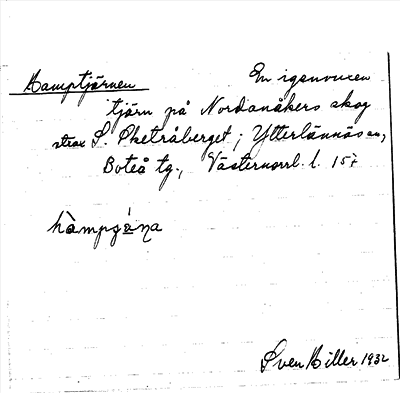 Hamptjärnen En igenvuxen
tjärn på Nordanåkers skog
strax S. ; Ytterlännäs sn,
Boteå tg., Västernorrl. l. 157
hàmpɡ
Sven Hiller 1932